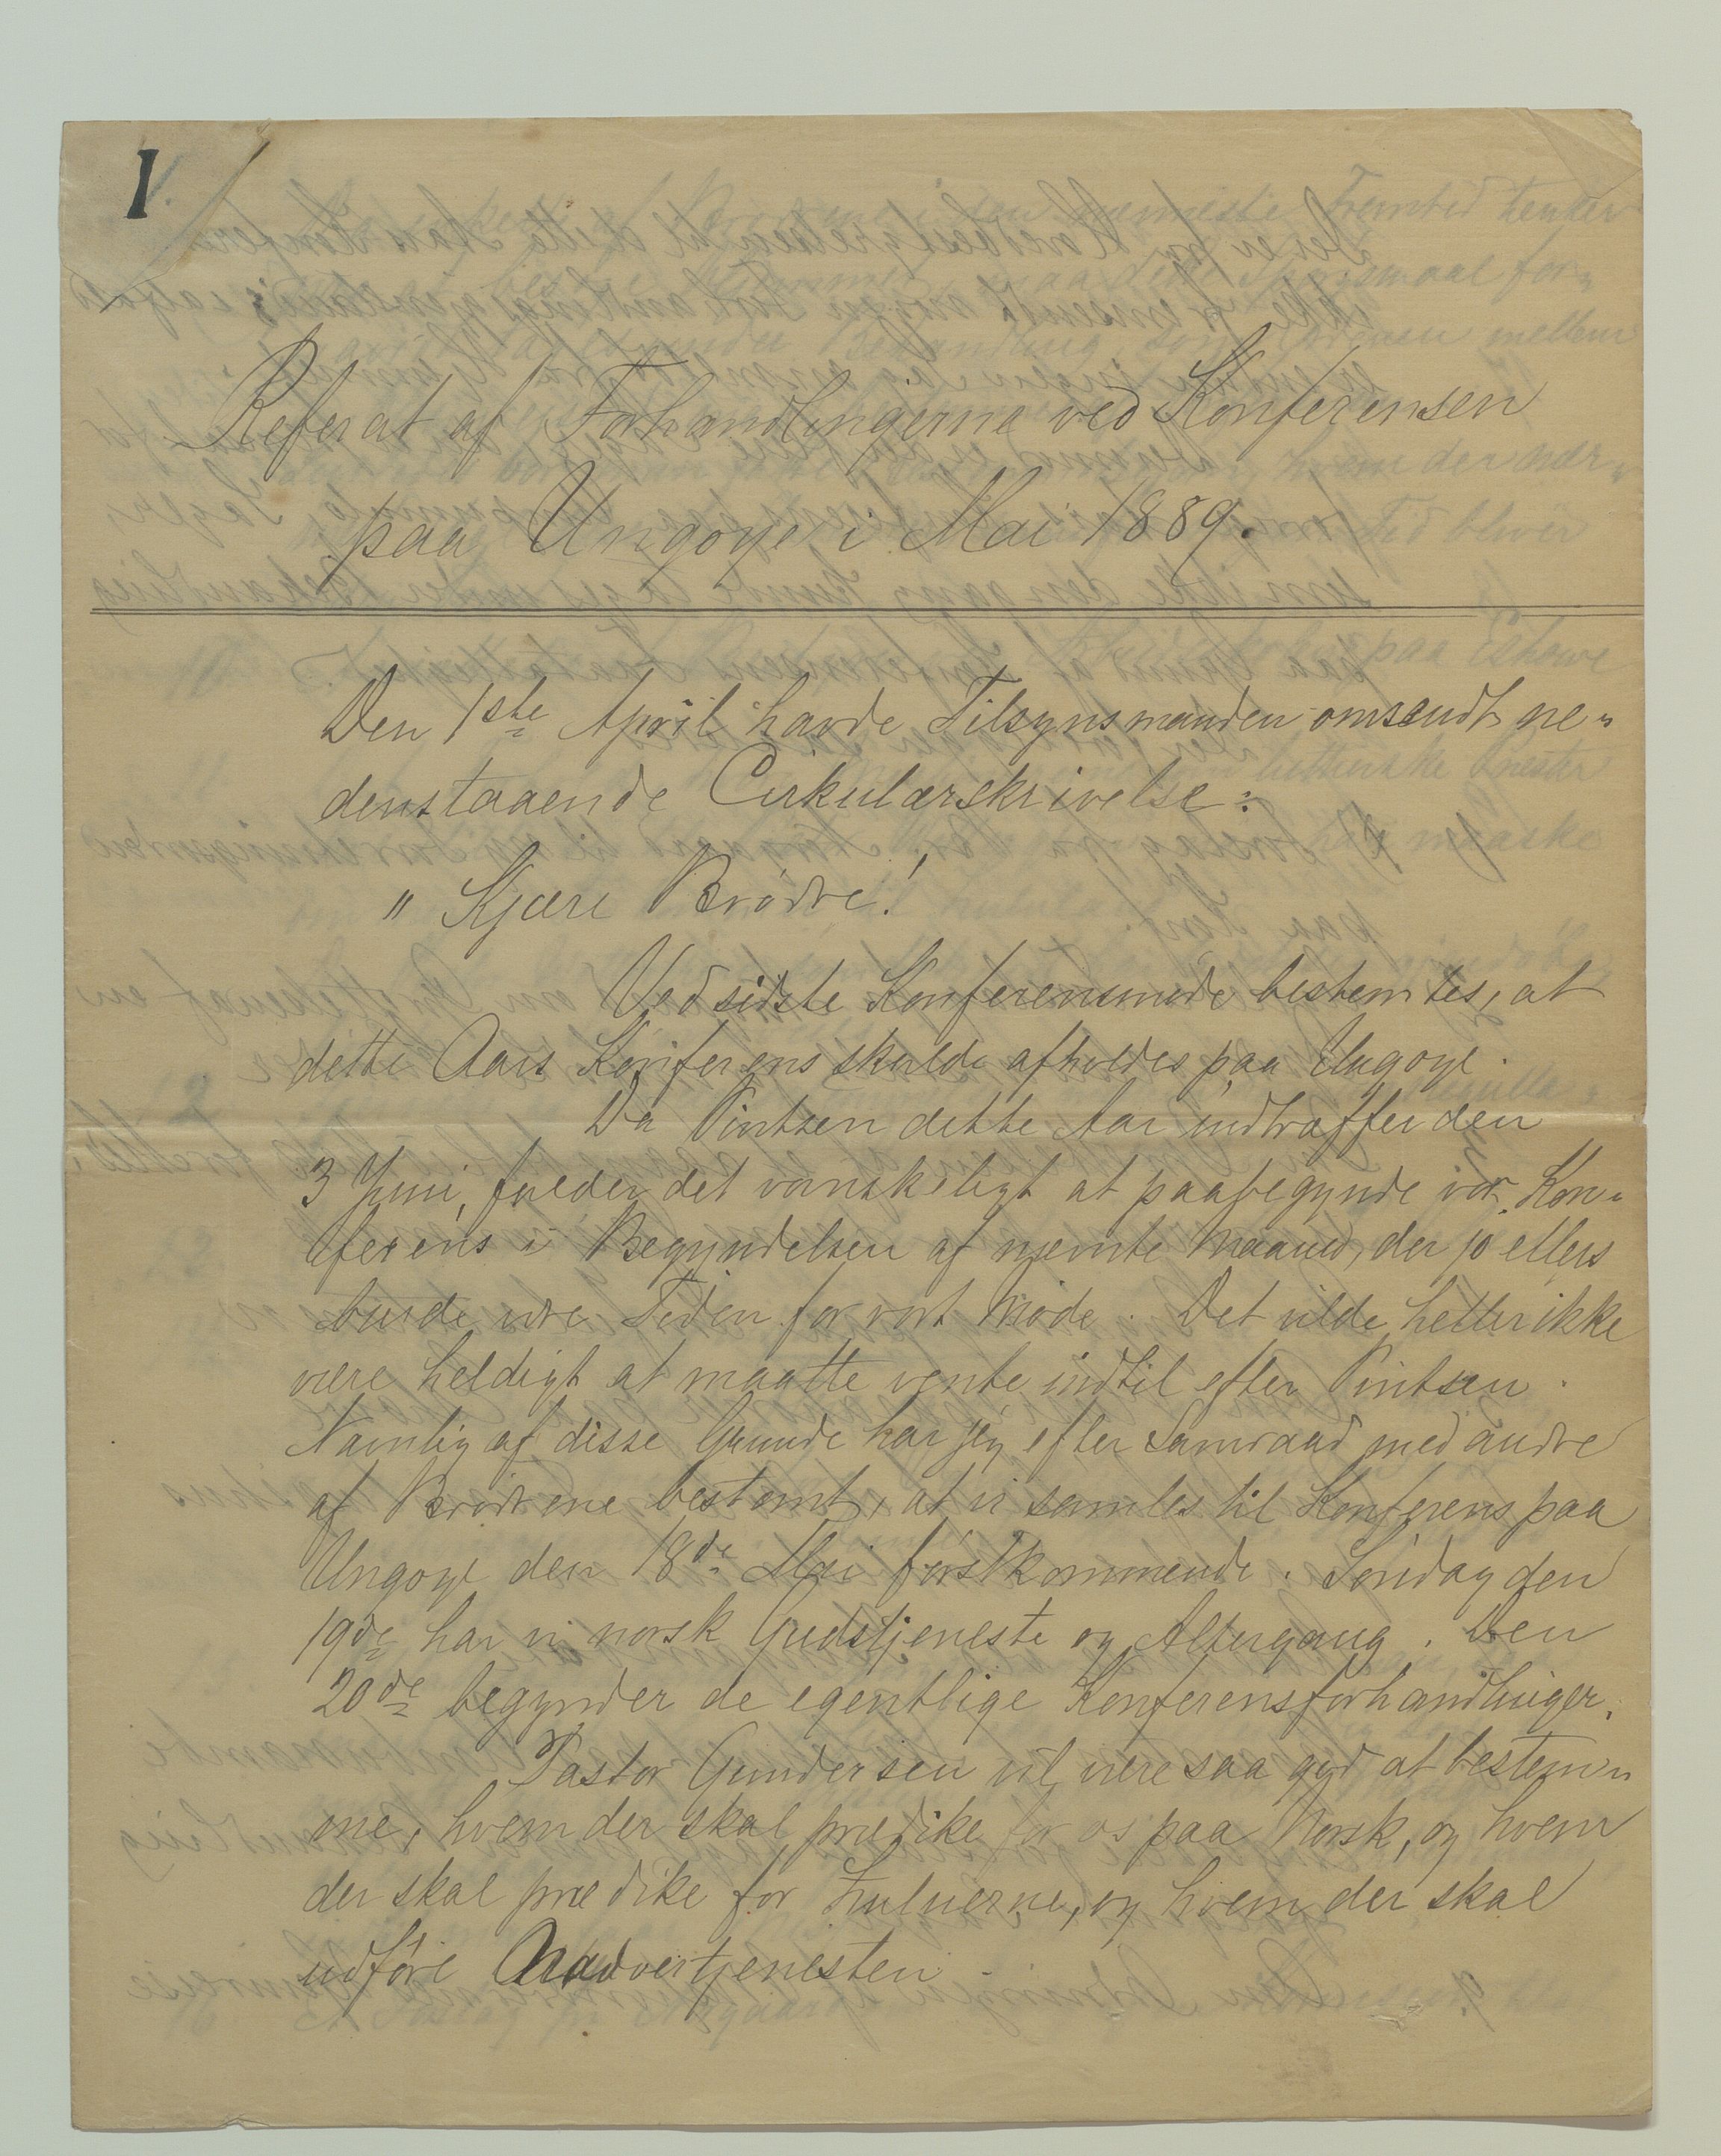 I
Referat af Forhandlingerne ved Konferensen
paa Ungoye i Mai 1889.
Den 1ste April havde Tilsynsmanden omsendt ne„
denstaaende Cirkulærskrivelse:
" Kjære Brødre!
Ved sidste Konferensmøde bestemtes, at
dette Aars Konferens skulde afholdes paa Ungoye.
Da Pintsen dette Aar indtræffer den
3 Juni, falder det vanskeligt at paabegynde vor Kon„
ferens i Begyndelsen af nævnte Maaned, der jo ellers
burde være Tiden for vort Møde. Det vilde heller ikke
være heldigt at maatte vente indtil efter Pintsen.
Navnlig af disse Grunde har jeg efter Samraad med andre
af Brødrene bestemt, at vi samles til Konferens paa
Ungoye den 18de Mai førstkommende. Søndag den
19de har vi norsk Gudstjeneste og Altergang. Den
20de begynder de egentlige Konferensforhandlinger.
Pastor Gundersen vil være saa god at bestem„
me, hvem der skal prædike for os paa Norsk, og hvem
der skal prædike for Zuluerne, og hvem der skal
udføre Nadvertjenesten.